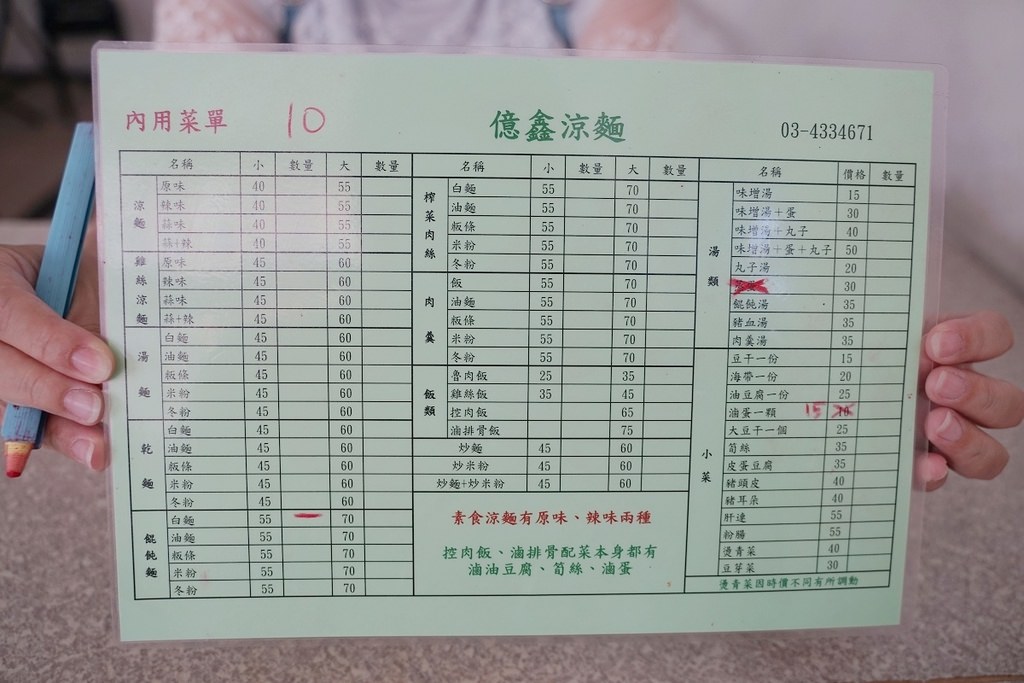 內用菜單 10 億鑫涼麵 03-4334671
名稱 小 數量 大 數量
涼麵
原味 40 55
辣味 40 55
蒜味 40 55
蒜+辣 40 55
雞絲涼麵
原味 45 60
辣味 45 60
蒜味 45 60
蒜+辣 45 60
湯麵
白麵 45 60
油麵 45 60
粄條 45 60
米粉 45 60
冬粉 45 60
乾麵
白麵 45 60
油麵 45 60
粄條 45 60
米粉 45 60
冬粉 45 60
餛飩麵
白麵 55 70
油麵 55 70
粄條 55 70
米粉 55 70
冬粉 55 70
名稱 小 數量 大 數量
榨菜肉絲
白麵 55 70
油麵 55 70
粄條 55 70
米粉 55 70
冬粉 55 70
肉羹
飯 55 70
油麵 55 70
粄條 55 70
米粉 55 70
冬粉 55 70
飯類
魯肉飯 25 35
雞絲飯 35 45
控肉飯 65
滷排骨飯 75
炒麵 45 60
炒米粉 45 60
炒麵+炒米粉 45 60
素食涼麵有原味、辣味兩種
控肉飯、滷排骨配菜本身都有
滷油豆腐、筍絲、滷蛋
名稱 價格 數量
湯類
味增湯 15
味增湯+蛋 30
味增湯+丸子 40
味增湯+蛋+丸子 50
丸子湯 20
30
餛飩湯 35
豬血湯 35
肉羹湯 35
小菜
豆干一份 15
海帶一份 20
油豆腐一份 25
滷蛋一顆 15 10
大豆干一個 25
筍絲 35
皮蛋豆腐 35
豬頭皮 40
豬耳朵 40
肝連 55
粉腸 55
燙青菜 40
豆芽菜 30
燙青菜因時價不同有所調動